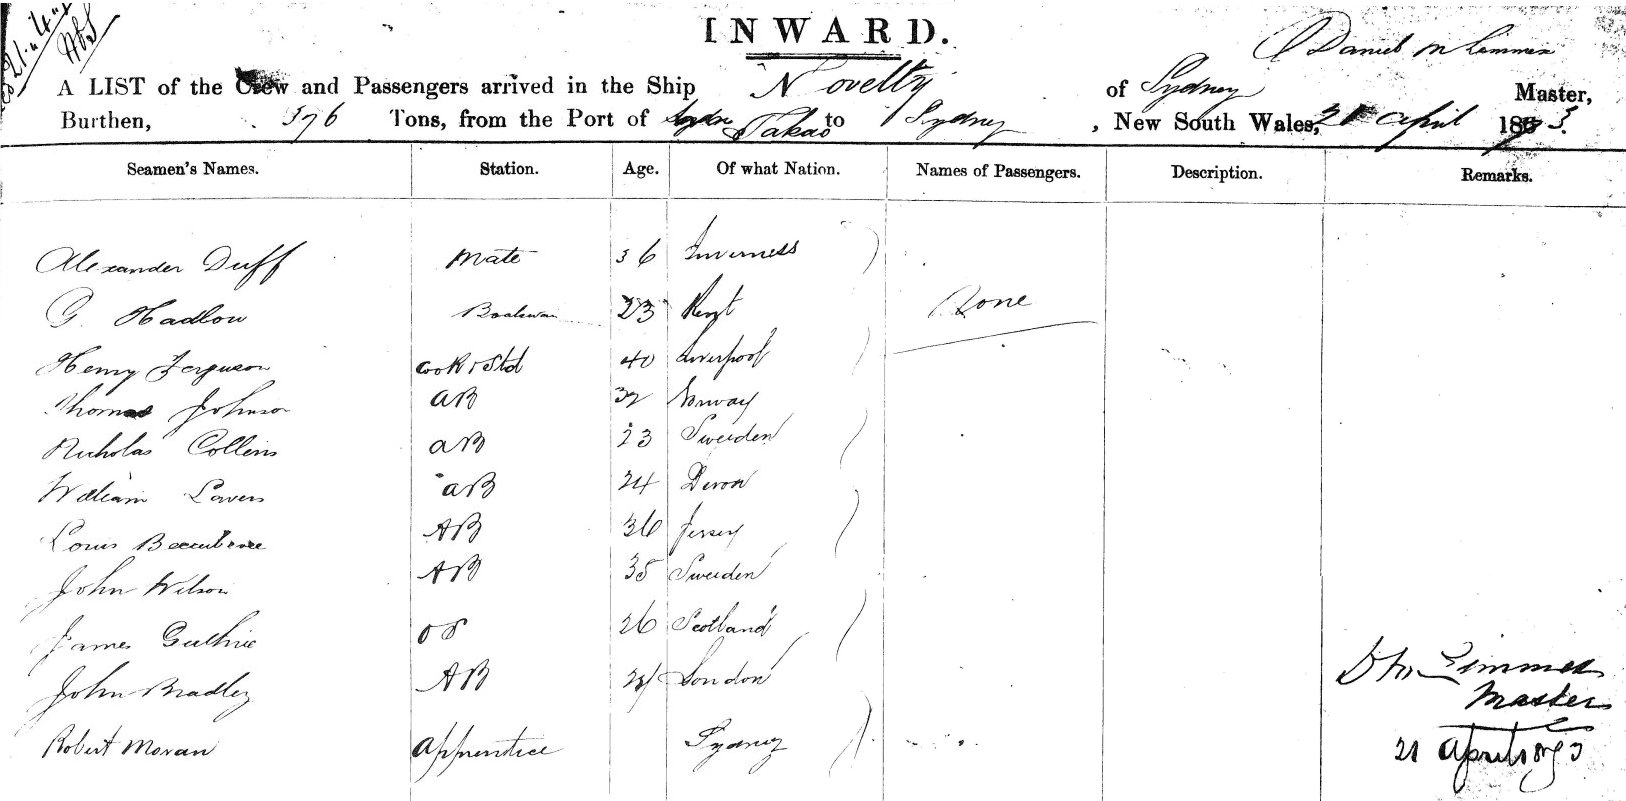 INWARD.
Daniel M
A LIST of the Crew and Passengers arrived in the Ship Novelty of Sydney Master,
Burthen, 376 Tons, from the Port of Takao to Sydney, New South Wales, 21 April 1873.
Seamen's Names. Station. Age. Of what Nation. Names of Passengers. Description. Remarks.
Alexander Duff Mate 36 Inverness
G. Hadlow Boatswain 23 Kent None
Henry Ferguson Cook & Std 40 Liverpool
Thomas Johnson AB 32 Norway
Nicholas Collens AB 23 Sweden
William Lavers AB 24 Devon
Louis AB 36 Jersey
John Wilson AB 35 Sweden
James Guthrie OS 26 Scotland
John Bradley AB London
Master
Robert Moran Apprentice Sydney
21 April 1873